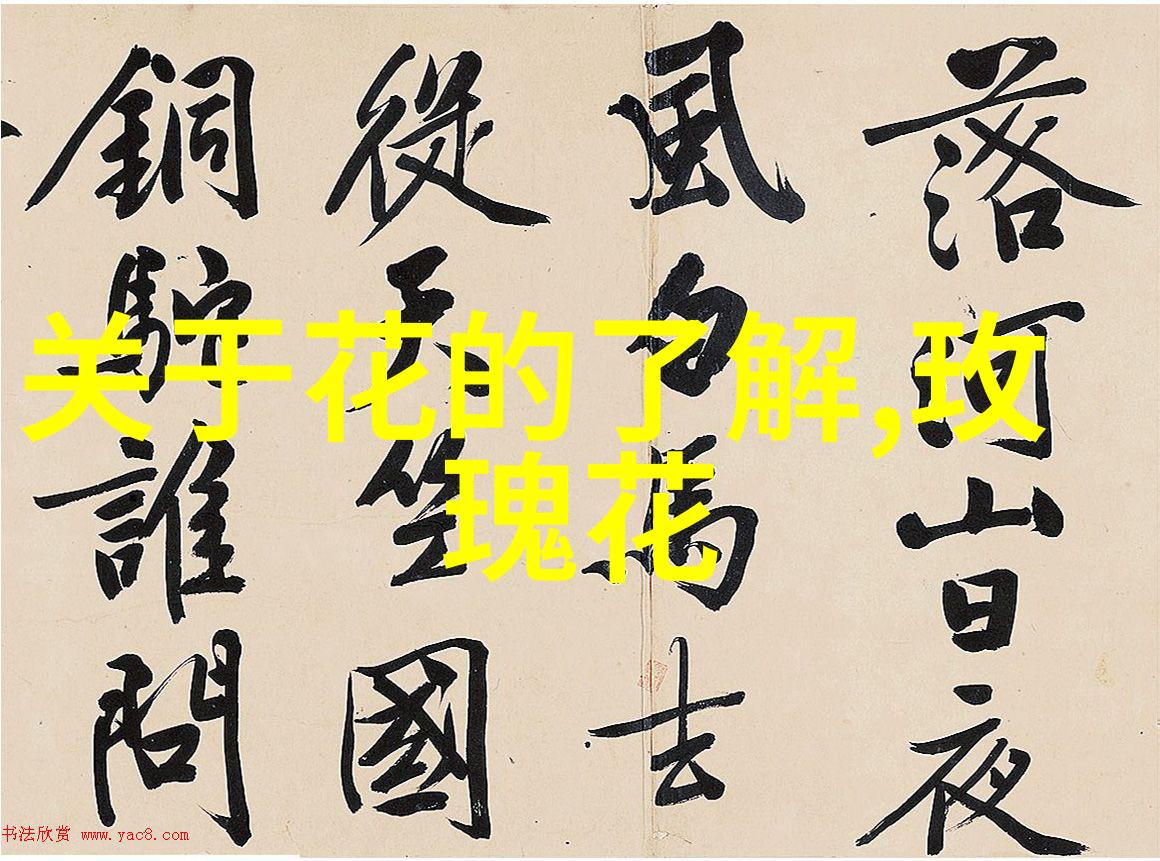 落河山日夜
風白馬去
從天竺國
銅駝誰問
关于花的了解,玫
瑰花
书法欣赏 www.yac8.com